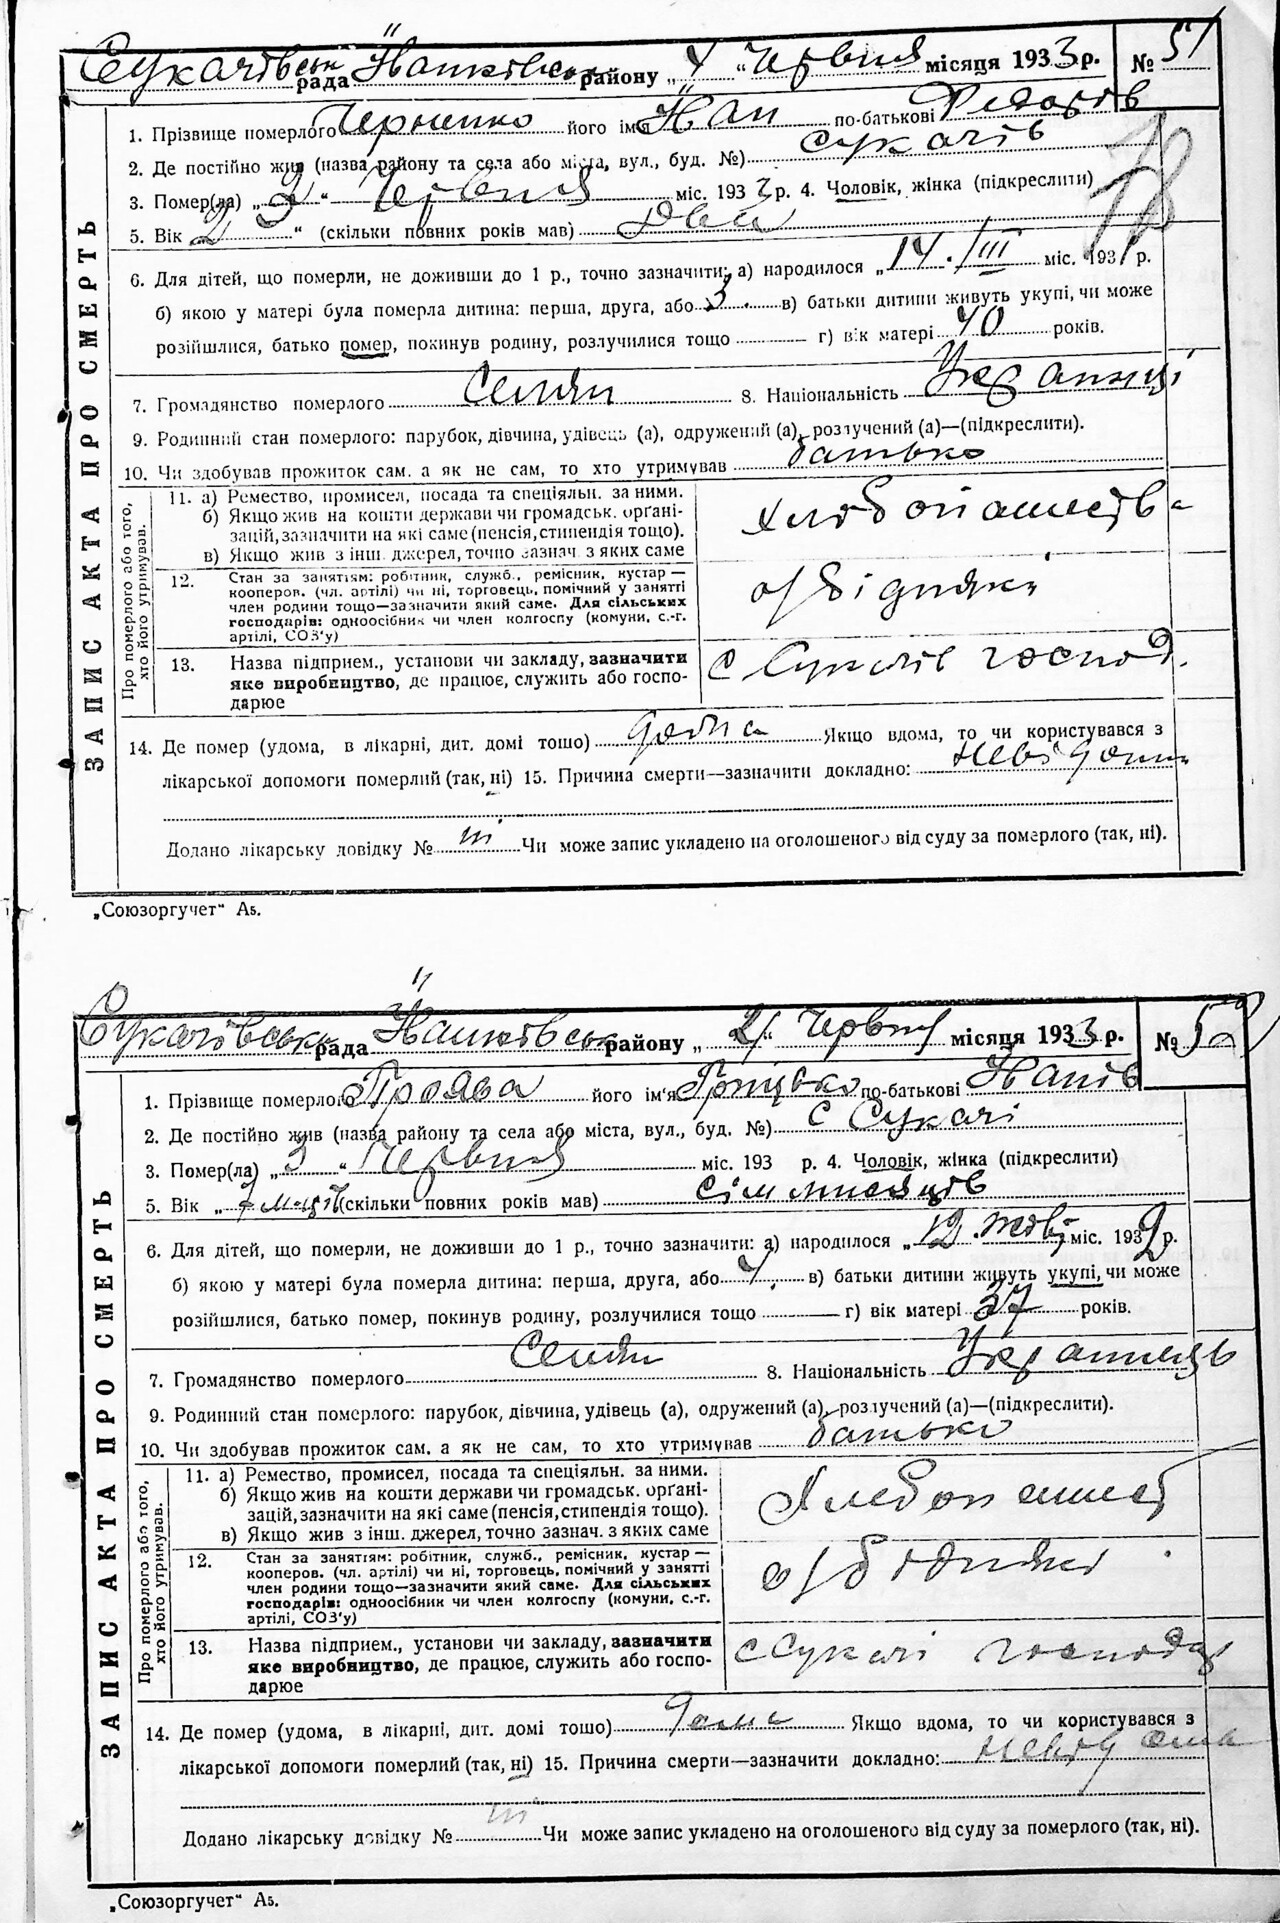 Сукачівськ рада Йванківськ району „4“ Червня місяця 1933 р. № 51
1. Прізвище померлого Черненко його ім'я Йван по-батькові Федорів
2. Де постійно жив (назва району та села або міста, вул., буд. №) Сукачів
3. Помер(ла) „3“ Червня міс. 1933 р. 4. Чоловік, жінка (підкреслити)
5. Вік „2“ (скільки повних років мав) Два
18
6. Для дітей, що померли, не доживши до 1 р., точно зазначити: а) народилося „14. III міс. 1931 р.
б) якою у матері була померла дитина: перша, друга, або 3. в) батьки дитини живуть укупі, чи може
розійшлися, батько помер, покинув родину, розлучилися тощо г) вік матері 40 років.
7. Громадянство померлого Селян 8. Національність Украинці
9. Родинний стан померлого: парубок, дівчина, удівець (а), одружений (а), розлучений (а)—(підкреслити).
10. Чи здобував прожиток сам, а як не сам, то хто утримував батько
ЗАПИС АКТА ПРО СМЕРТЬ
Про померлого або того, хто його утримував.
11. а) Ремество, промисел, посада та спеціяльн. за ними.
б) Якщо жив на кошти держави чи громадськ. орґані-
зацій, зазначити на які саме (пенсія, стипендія тощо).
в) Якщо жив з інш. джерел, точно зазнач. з яких саме
12. Стан за занятіям: робітник, служб., ремісник, кустар—
кооперов. (чл. артілі) чи ні, торговець, помічний у занятті
член родини тощо—зазначити який саме. Для сільських
господарів: одноосібник чи член колгоспу (комуни, с.-г.
артілі, СОЗ'у)
о/бідняки
13. Назва підприєм., установи чи закладу, зазначити
яке виробництво, де працює, служить або госпо-
дарює
с Сукачів господ.
14. Де помер (удома, в лікарні, дит. домі тощо) дома Якщо вдома, то чи користувався з
лікарської допомоги померлий (так, ні) 15. Причина смерти—зазначити докладно: невідома
Додано лікарську довідку № ні Чи може запис укладено на оголошеного від суду за померлого (так, ні).
„Союзоргучет“ А5.
Сукачівськ рада Йванківськ району „ “ Червня місяця 1933 р. № 52
1. Прізвище померлого Проява його ім'я Грицько по-батькові Йванів
2. Де постійно жив (назва району та села або міста, вул., буд. №) с Сукачі
3. Помер(ла) „3“ Червня міс. 193 р. 4. Чоловік, жінка (підкреслити)
5. Вік „7 м-ців (скільки повних років мав) сім мисяців
6. Для дітей, що померли, не доживши до 1 р., точно зазначити: а) народилося „12. жовт міс. 1932 р.
б) якою у матері була померла дитина: перша, друга, або в) батьки дитини живуть укупі, чи може
розійшлися, батько помер, покинув родину, розлучилися тощо г) вік матері 37 років.
7. Громадянство померлого Селян 8. Національність Украинець
9. Родинний стан померлого: парубок, дівчина, удівець (а), одружений (а), розлучений (а)—(підкреслити).
10. Чи здобував прожиток сам, а як не сам, то хто утримував батько
ЗАПИС АКТА ПРО СМЕРТЬ
Про померлого або того, хто його утримував.
11. а) Ремество, промисел, посада та спеціяльн. за ними.
б) Якщо жив на кошти держави чи громадськ. орґані-
зацій, зазначити на які саме (пенсія, стипендія тощо).
в) Якщо жив з інш. джерел, точно зазнач. з яких саме
12. Стан за занятіям: робітник, служб., ремісник, кустар—
кооперов. (чл. артілі) чи ні, торговець, помічний у занятті
член родини тощо—зазначити який саме. Для сільських
господарів: одноосібник чи член колгоспу (комуни, с.-г.
артілі, СОЗ'у)
о/бідняки
13. Назва підприєм., установи чи закладу, зазначити
яке виробництво, де працює, служить або госпо-
дарює
с Сукачі
14. Де помер (удома, в лікарні, дит. домі тощо) дома Якщо вдома, то чи користувався з
лікарської допомоги померлий (так, ні) 15. Причина смерти—зазначити докладно: невідома
Додано лікарську довідку № ні Чи може запис укладено на оголошеного від суду за померлого (так, ні).
„Союзоргучет“ А5.